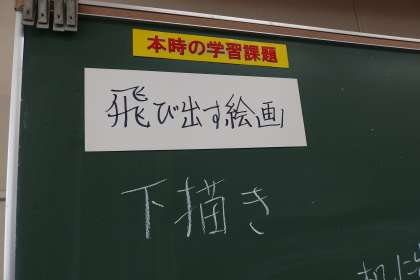 本時の学習課題
飛び出す絵画
下描き